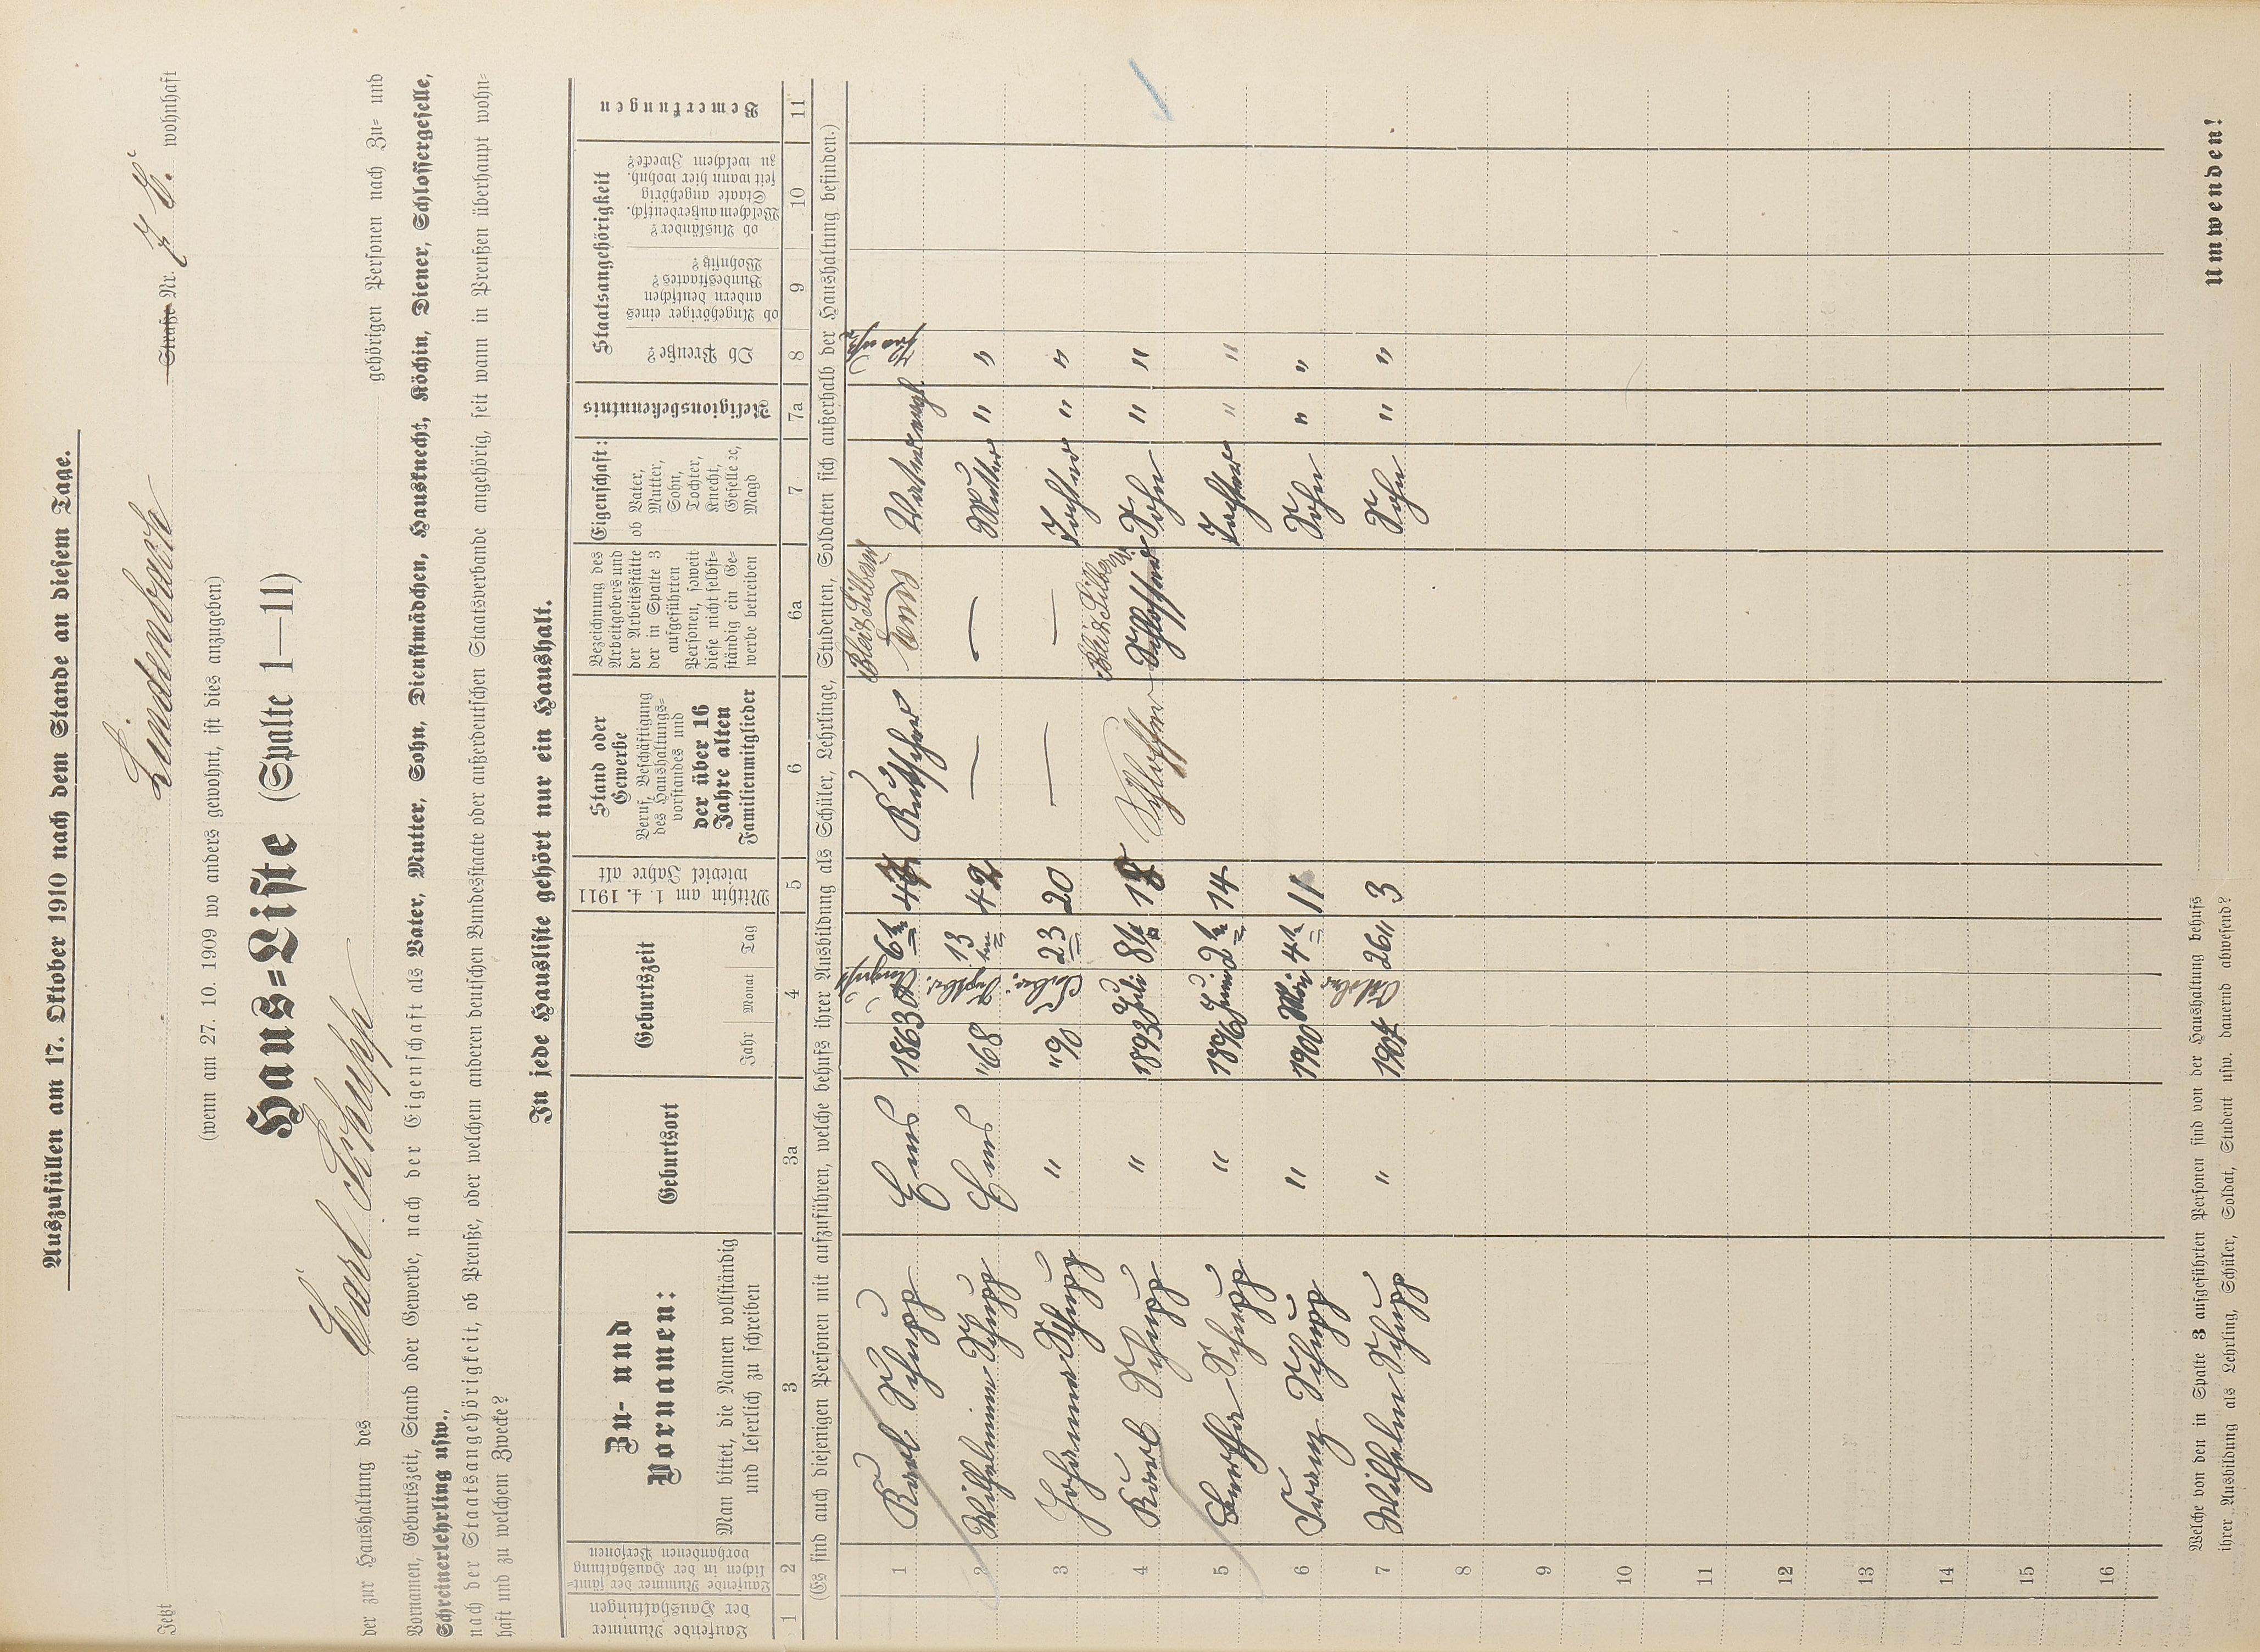 Auszufüllen am 17. Oktober 1910 nach dem Stande an diesem Tage.
Jetzt Lindenbach Straße Nr. wohnhaft
(wenn am 27. 10. 1909 wo anders gewohnt, ist dies anzugeben)
Haus=Liste (Spalte 1—11)
der zur Haushaltung des Carl Schupp gehörigen Personen nach Zu= und
Vornamen, Geburtszeit, Stand oder Gewerbe, nach der Eigenschaft als Vater, Mutter, Sohn, Dienstmädchen, Hausknecht, Köchin, Diener, Schlossergeselle,
Schreinerlehrling usw.,
nach der Staatsangehörigkeit, ob Preuße, oder welchem anderen deutschen Bundesstaate oder außerdeutschen Staatsverbande angehörig, seit wann in Preußen überhaupt wohn=
haft und zu welchem Zwecke?
In jede Hausliste gehört nur ein Haushalt.
Laufende Nummer der Haushaltungen
Laufende Nummer der sämt=lichen in der Haushaltung vorhandenen Personen
Zu- und Vornamen:
Man bittet, die Namen vollständig und leserlich zu schreiben
Geburtsort
Geburtszeit
Jahr Monat Tag
Mithin am 1. 4. 1911 wieviel Jahre alt
Stand oder Gewerbe
Beruf, Beschäftigung des Haushaltungs=vorstandes und der über 16 Jahre alten Familienmitglieder
Bezeichnung des Arbeitgebers und der Arbeitsstätte der in Spalte 3 aufgeführten Personen, soweit diese nicht selbst=ständig ein Ge=werbe betreiben
Eigenschaft:
ob Vater, Mutter, Sohn, Tochter, Knecht, Geselle ꝛc, Magd
Religionsbekenntnis
Staatsangehörigkeit
Ob Preuße?
ob Angehöriger eines andern deutschen Bundesstaates? Wohnsitz?
ob Ausländer? Welchem außerdeutsch. Staate angehörig seit wann hier wohnh. zu welchem Zwecke?
Bemerkungen
1 2 3 3a 4 5 6 6a 7 7a 8 9 10 11
(Es sind auch diejenigen Personen mit aufzuführen, welche behufs ihrer Ausbildung als Schüler, Lehrlinge, Studenten, Soldaten sich außerhalb der Haushaltung befinden.)
1 Karl Schupp Ems 1863 August 6 47 Kutscher Blei & Silber Vater
2 Wilhelmine Schupp Ems "68 13 42 — — Mutter " "
3 Johanna Schupp " "90 23 20 — — Tochter " "
4 Karl Schupp " 1893 Juli 8 Schlosser Blei & Silber Schlosser Sohn " "
5 Bertha Schupp " 1896 Juni 2 14 Tochter " "
6 Franz Schupp " 1900 Mai 4 11 Sohn " "
7 Wilhelm Schupp " 1907 Oktober 26 3 Sohn " "
8
9
10
11
12
13
14
15
16
Welche von den in Spalte 3 aufgeführten Personen sind von der Haushaltung behufs
ihrer Ausbildung als Lehrling, Schüler, Soldat, Student usw. dauernd abwesend?
Umwenden!